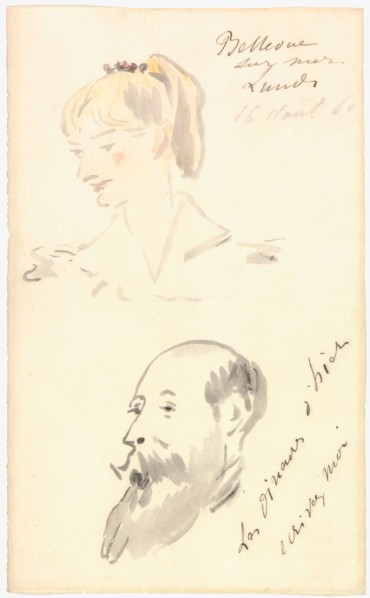 Bellevue
sur mer
Lundi
16 Août
Les d'hier
ecrivez moi